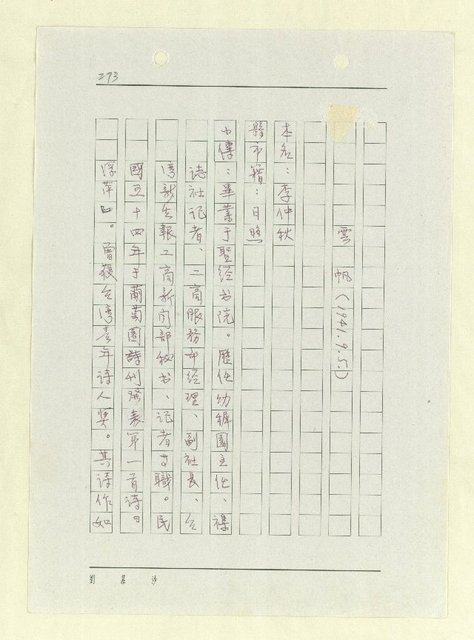 273
雲 帆(1941.9.5.)
本名:李仲秋
縣市籍:日照
小傳:畢業于聖經書院。歷任幼稚園主任、雜
誌社記者、工商服務部經理、副社長、台
灣新生報工商新聞部秘书、记者等職。民
國五十四年于葡萄園詩刊發表第一首诗〈
浮萍〉。曾獲台灣青年诗人獎。其诗作如
劉 沙